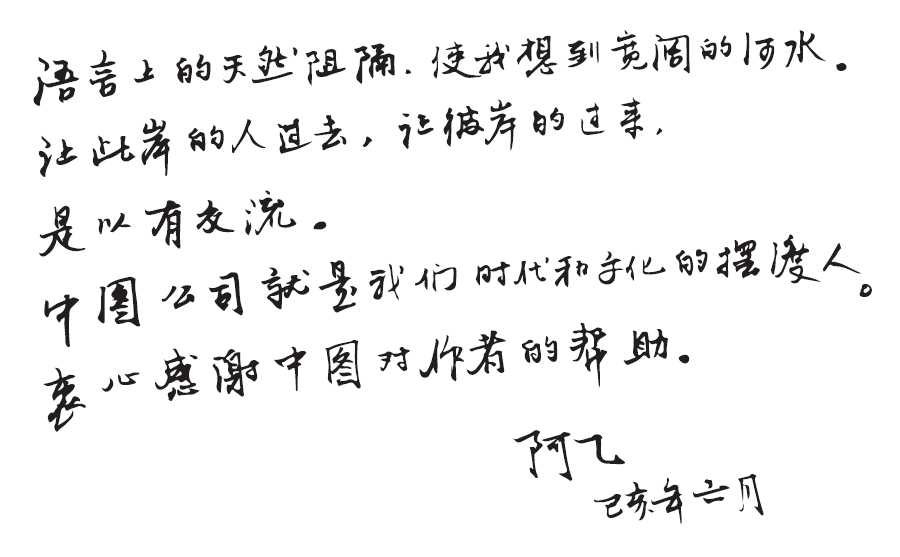 语言上的天然阻隔.使我想到宽阔的河水。
让此岸的人过去,让彼岸的过来,
是以有交流。
中图公司就是我们时代和文化的摆渡人。
衷心感谢中图对作者的帮助。
阿乙
己亥年六月